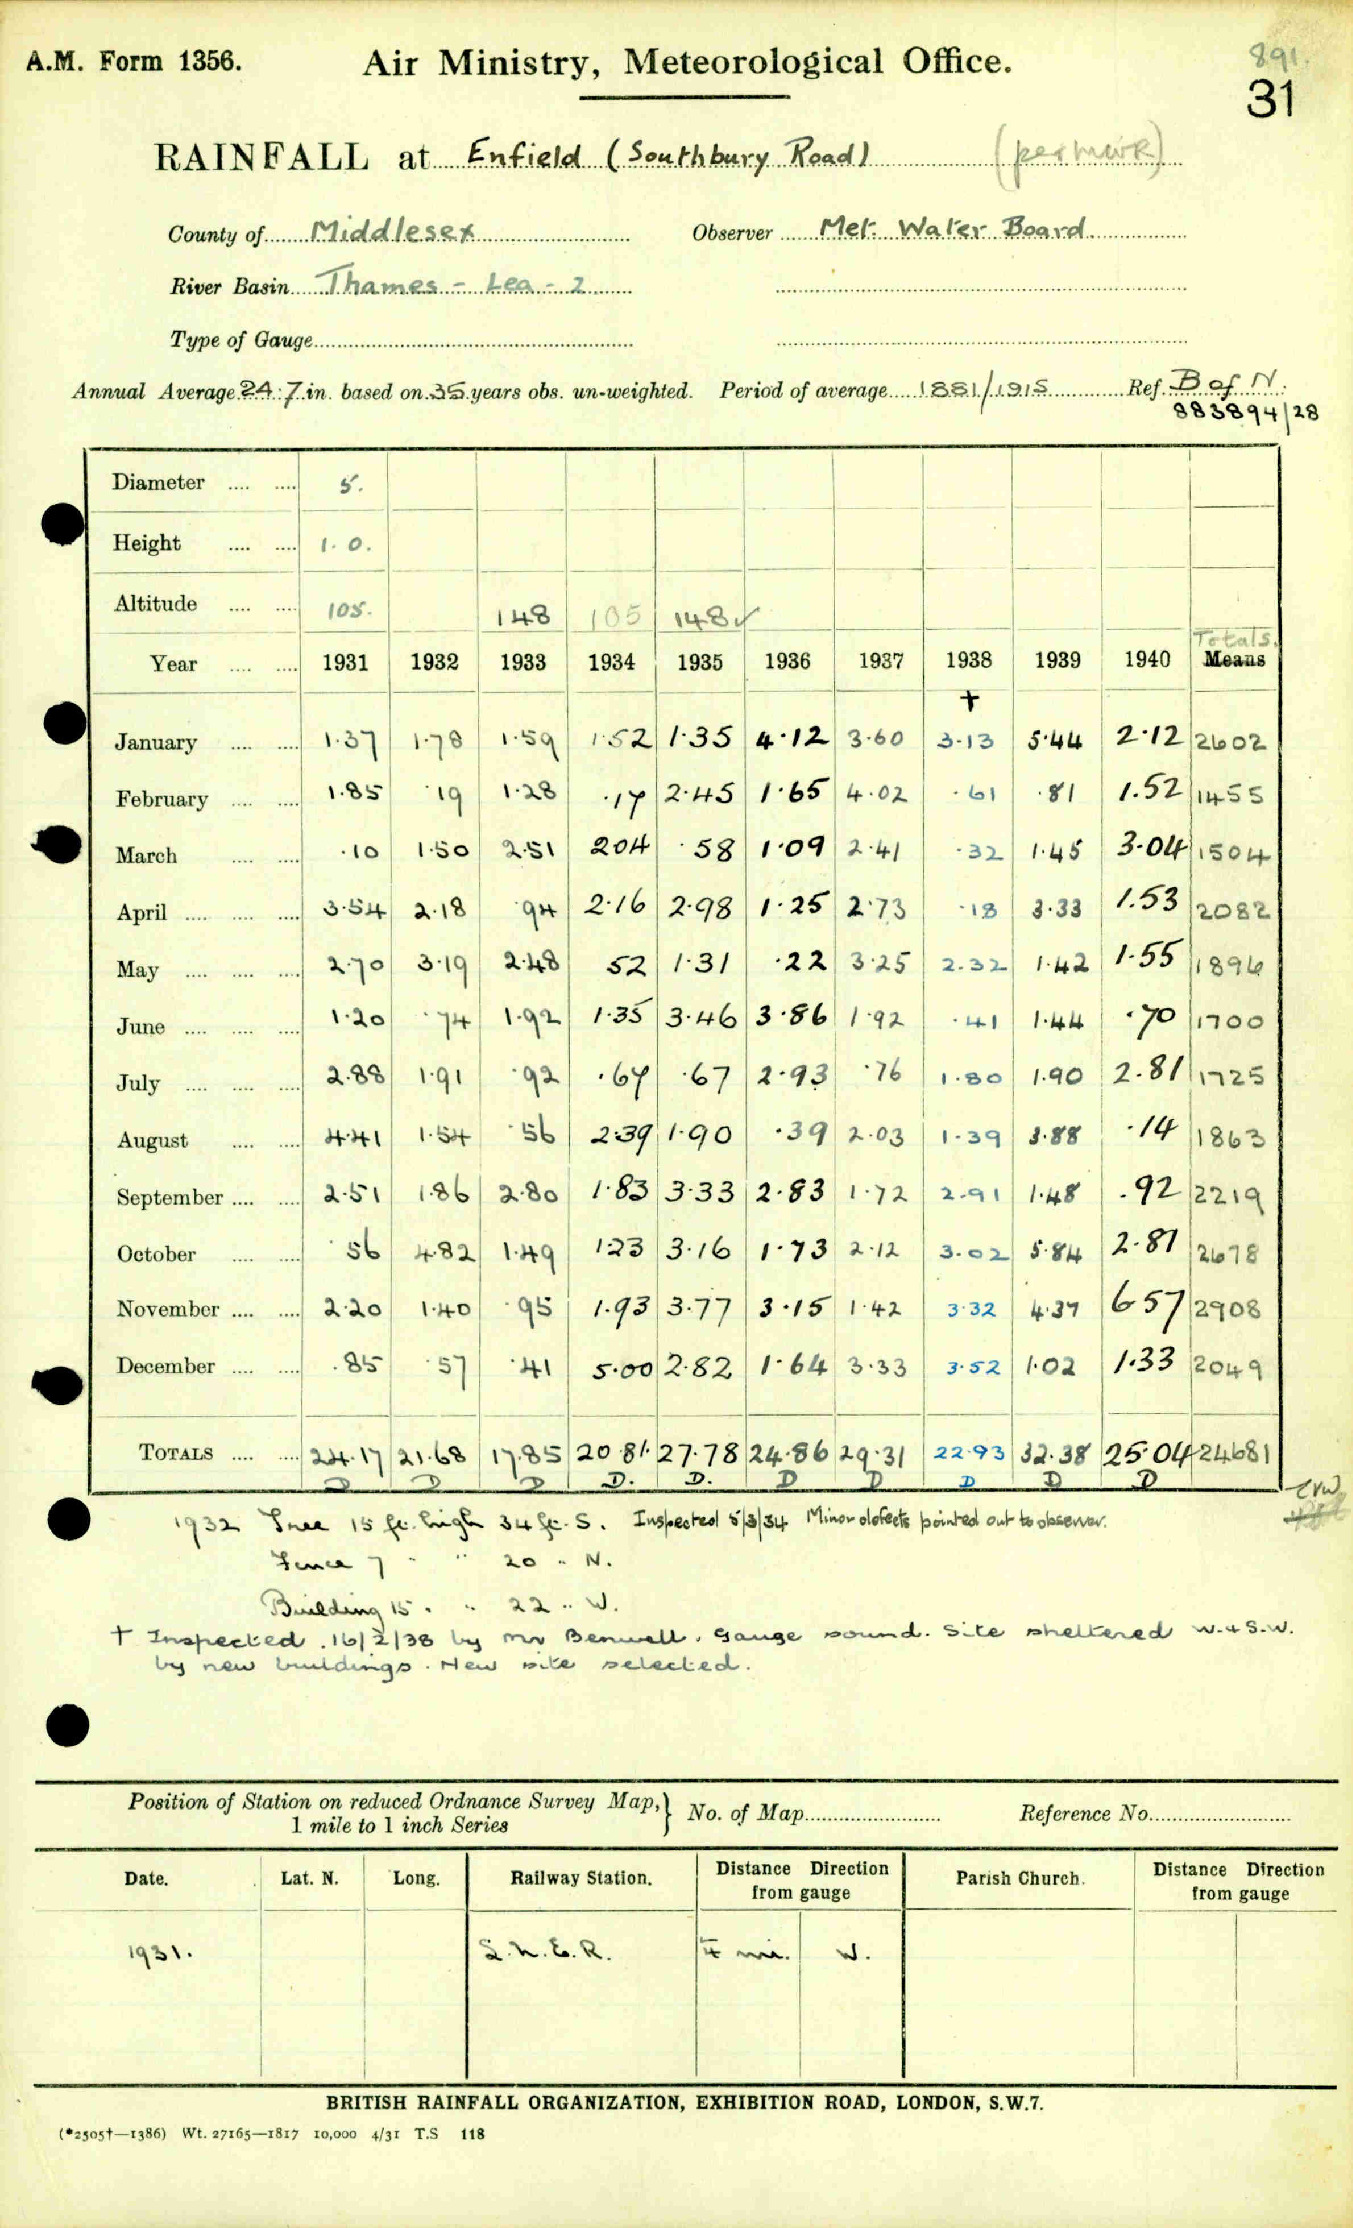 891.
A.M. Form 1356. Air Ministry, Meteorological Office.
31
RAINFALL at Enfield (Southbury Road) (per MWR)
County of Middlesex Observer Met. Water Board
River Basin Thames - Lea - 2
Type of Gauge
Annual Average 24.7 in. based on 35 years obs. un-weighted. Period of average 1881/1915 Ref. B of N.
883894/28
Diameter 5.
Height 1. 0.
Altitude 105. 148 105 148 ✓
Totals.
Year 1931 1932 1933 1934 1935 1936 1937 1938 1939 1940 Means
†
January 1.37 1.78 1.59 1.52 1.35 4.12 3.60 3.13 5.44 2.12 2602
February 1.85 .19 1.28 .17 2.45 1.65 4.02 .61 .81 1.52 1455
March .10 1.50 2.51 2.04 .58 1.09 2.41 .32 1.45 3.04 1504
April 3.54 2.18 .94 2.16 2.98 1.25 2.73 .18 3.33 1.53 2082
May 2.70 3.19 2.48 52 1.31 .22 3.25 2.32 1.42 1.55 1896
June 1.20 .74 1.92 1.35 3.46 3.86 1.92 .41 1.44 .70 1700
July 2.88 1.91 .92 .67 .67 2.93 .76 1.80 1.90 2.81 1725
August 4.41 1.54 .56 2.39 1.90 .39 2.03 1.39 3.88 .14 1863
September 2.51 1.86 2.80 1.83 3.33 2.83 1.72 2.91 1.48 .92 2219
October .56 4.82 1.49 1.23 3.16 1.73 2.12 3.02 5.84 2.81 2678
November 2.20 1.40 .95 1.93 3.77 3.15 1.42 3.32 4.37 6.57 2908
December .85 .57 .41 5.00 2.82 1.64 3.33 3.52 1.02 1.33 2049
TOTALS 24.17 21.68 17.85 20.81 27.78 24.86 29.31 22.93 32.38 25.04 24681
D D D D. D. D D D D D
1932 Tree 15 ft. high 34 ft. S. Inspected 5/3/34 Minor defects pointed out to observer.
Fence 7 " " 20 " N.
Building 15 " " 22 " W.
† Inspected 16/2/38 by Mr Benwell. Gauge sound. Site sheltered W. & S.W.
by new buildings. New site selected.
Position of Station on reduced Ordnance Survey Map,} No. of Map Reference No.
1 mile to 1 inch Series
Date. Lat. N. Long. Railway Station. Distance Direction from gauge Parish Church. Distance Direction from gauge
1931. L.N.E.R. mi. W.
BRITISH RAINFALL ORGANIZATION, EXHIBITION ROAD, LONDON, S.W.7.
(*2505†—1386) Wt. 27165—1817 10,000 4/31 T.S 118